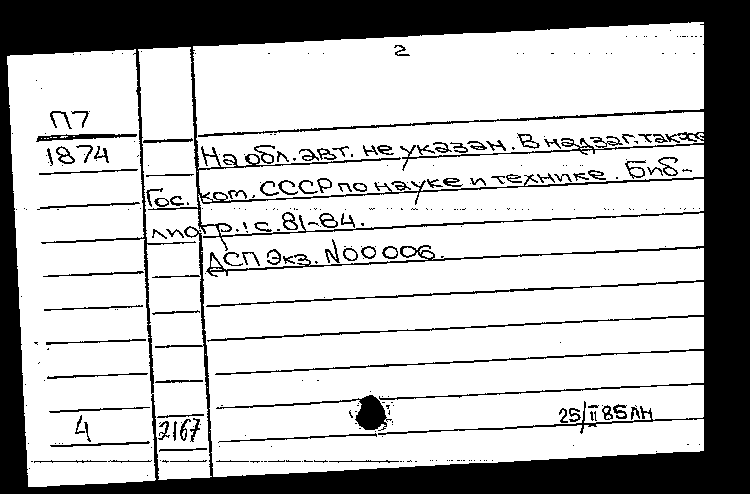 2
П7
1874
На обл. авт. не указан. В надзаг. также
Гос. ком. СССР по науке и технике. Биб-
лиогр.: с. 81-84.
ДСП Экз. N00006.
4 2167
25/II 85 ЛН